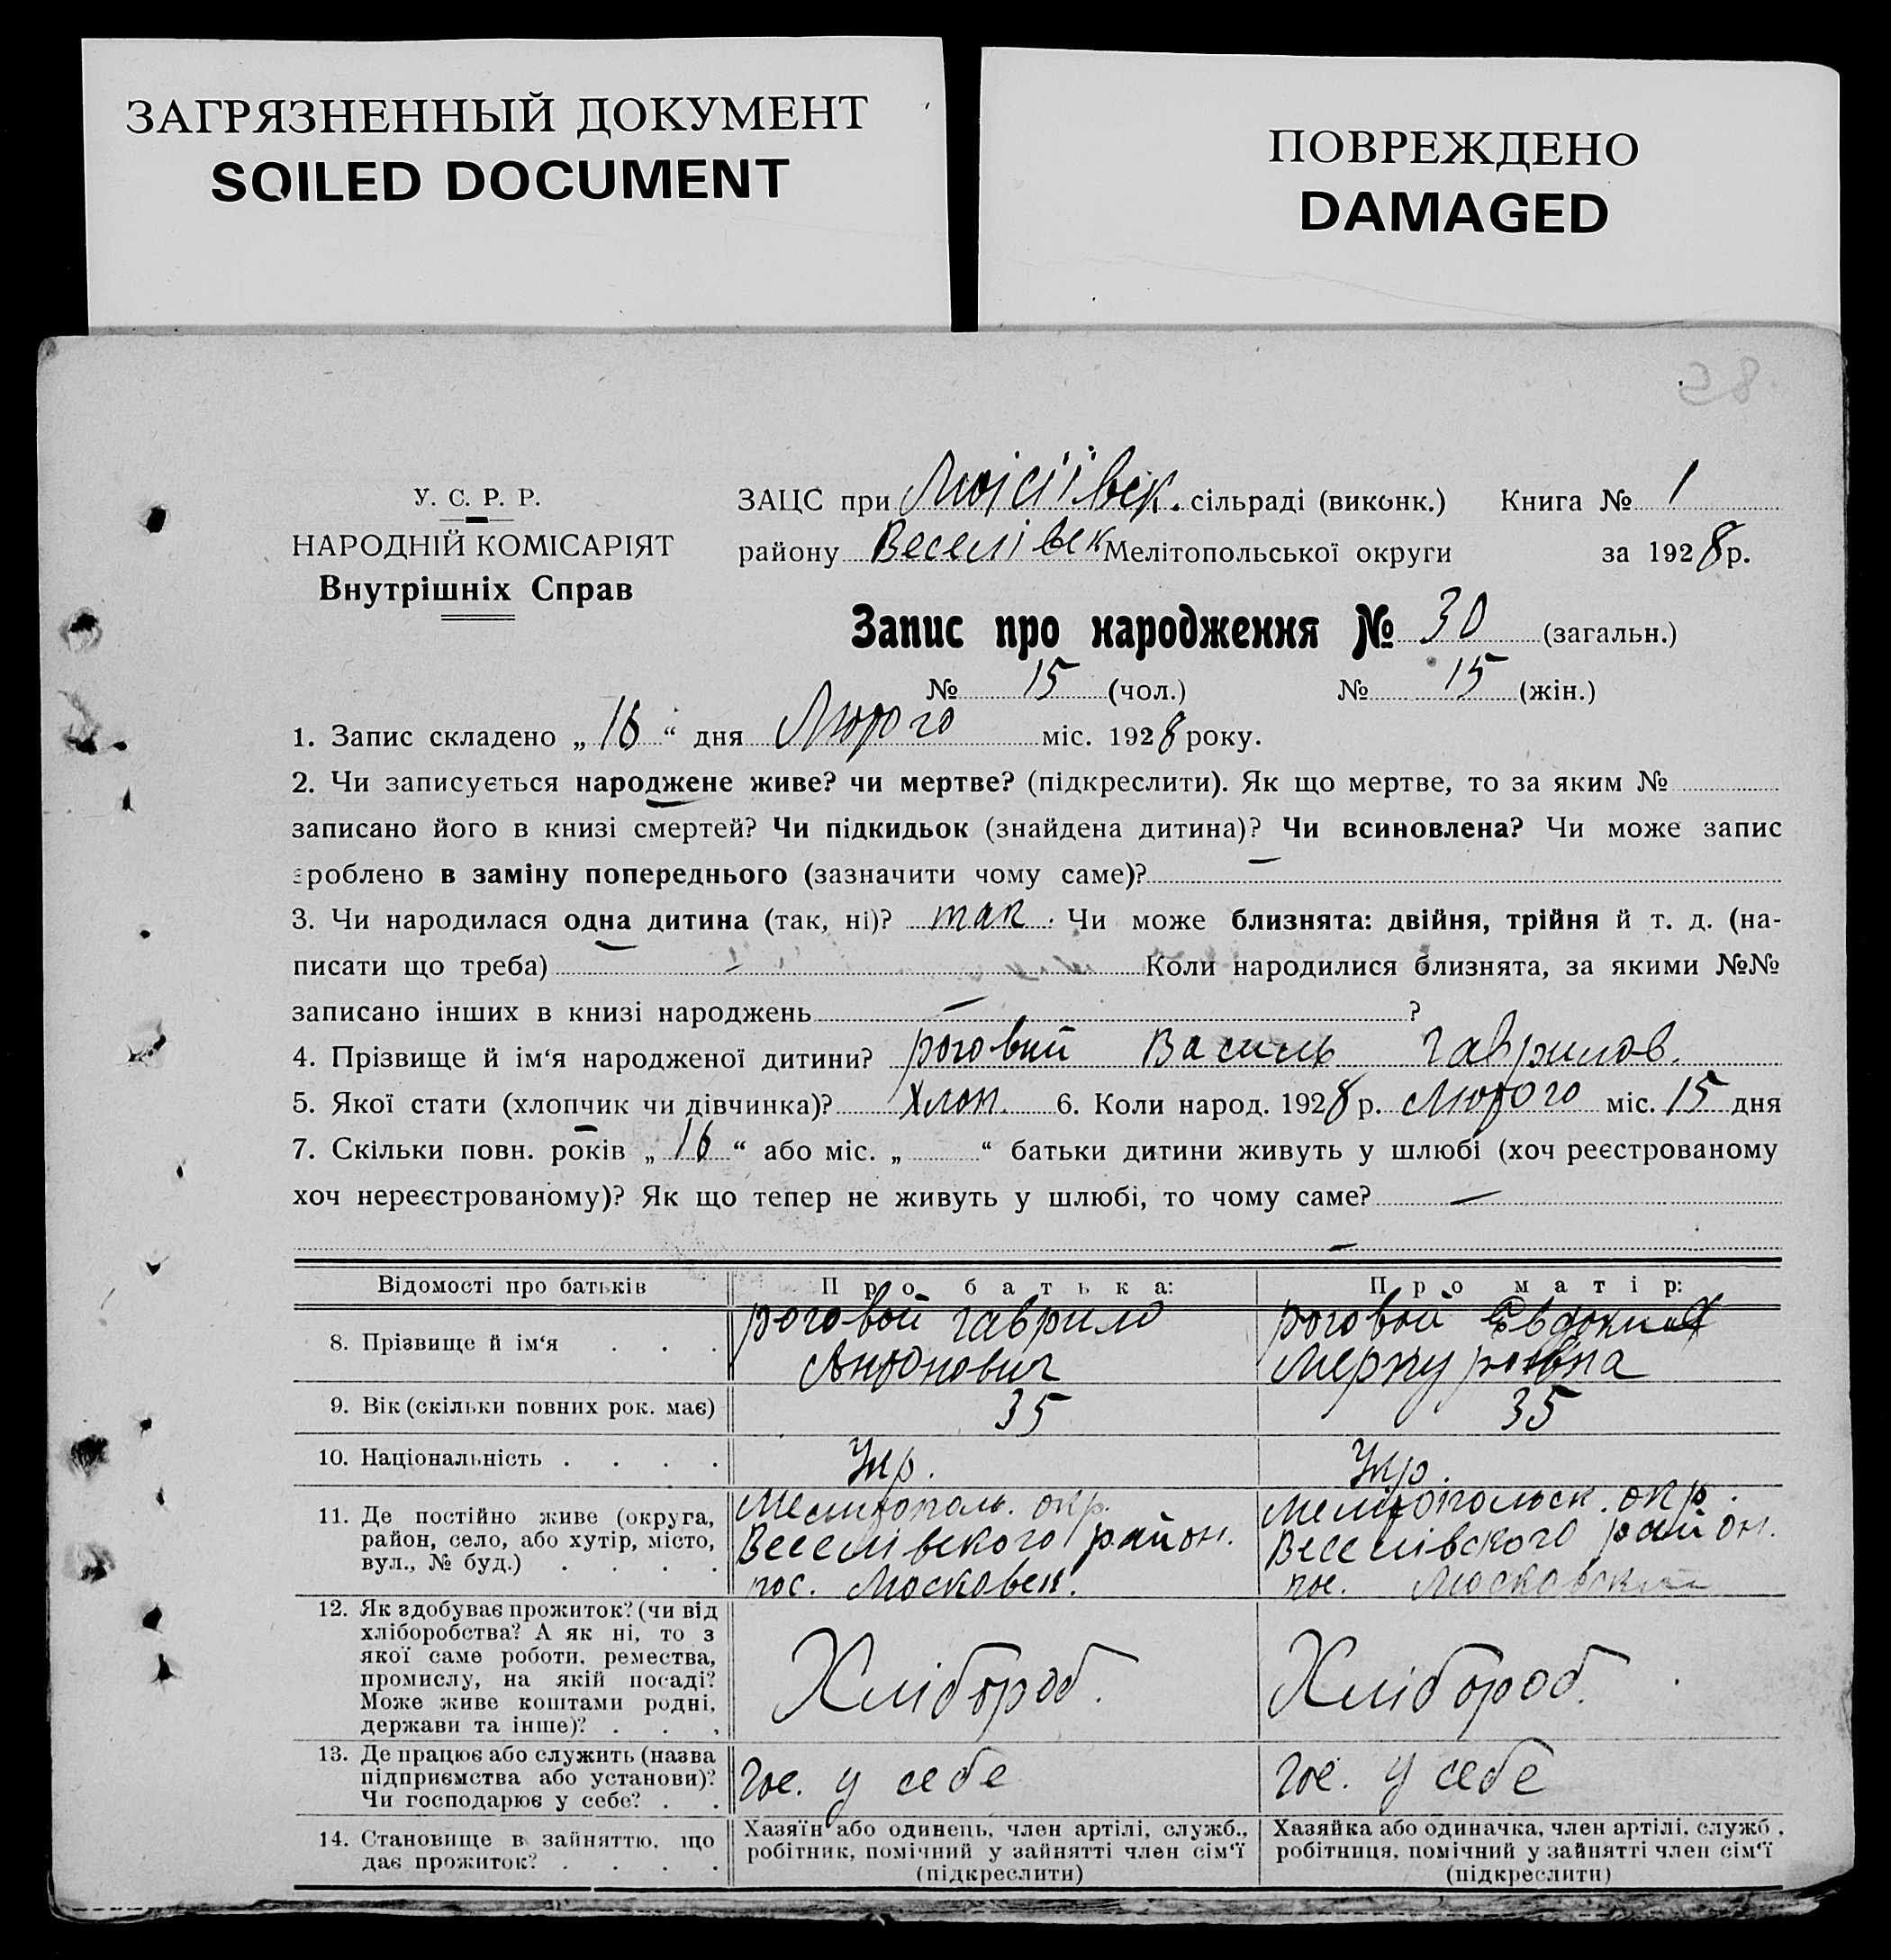 ЗАГРЯЗНЕННЫЙ ДОКУМЕНТ
SOILED DOCUMENT
ПОВРЕЖДЕНО
DAMAGED
У. С. Р. Р.
НАРОДНІЙ КОМІСАРІЯТ
Внутрішніх Справ
ЗАЦС при Мойсіївск. сільраді (виконк.) Книга № 1
району Веселівск Мелітопольської округи за 1928 р.
Запис про народження № 30 (загальн.)
№ 15 (чол.) № 15 (жін.)
1. Запис складено „16“ дня Лютого міс. 1928 року.
2. Чи записується народжене живе? чи мертве? (підкреслити). Як що мертве, то за яким №
записано його в книзі смертей? Чи підкидьок (знайдена дитина)? Чи всиновлена? Чи може запис
зроблено в заміну попереднього (зазначити чому саме)? —
3. Чи народилася одна дитина (так, ні)? так. Чи може близнята: двійня, трійня й т. д. (на-
писати що треба) — Коли народилися близнята, за якими №№
записано інших в книзі народжень — ?
4. Прізвище й ім‘я народженої дитини? роговий Василь Гаврилов.
5. Якої стати (хлопчик чи дівчинка)? Хлоп. 6. Коли народ. 1928 р. Лютого міс. 15 дня
7. Скільки повн. років „16“ або міс. „ “ батьки дитини живуть у шлюбі (хоч реєстрованому
хоч нереєстрованому)? Як що тепер не живуть у шлюбі, то чому саме? —
—
Відомості про батьків Про батька: Про матір:
8. Прізвище й ім‘я . . . роговой гаврило роговой Евдокия
Антонович Меркуровна
9. Вік (скільки повних рок. має) 35 35
10. Національність . . . . Укр. Укр.
11. Де постійно живе (округа, Мелитополь. окр. Мелітопольск. окр.
район, село, або хутір, місто, Веселівского район. Веселівского район.
вул., № буд.) . . . . пос. Московск. пос. Московский
12. Як здобуває прожиток? (чи від
хліборобства? А як ні, то з
якої саме роботи, ремества, Хлібороб. Хлібороб.
промислу, на якій посаді?
Може живе коштами родні,
держави та інше)? . . .
13. Де працює або служить (назва
підприємства або установи)? гос. у себе гос. у себе
Чи господарює у себе? . .
14. Становище в зайняттю, що Хазяїн або одинець, член артілі, служб., Хазяйка або одиначка, член артілі, служб.,
дає прожиток? . . . . робітник, помічний у зайнятті член сім‘ї робітниця, помічний у зайнятті член сім‘ї
(підкреслити) (підкреслити)